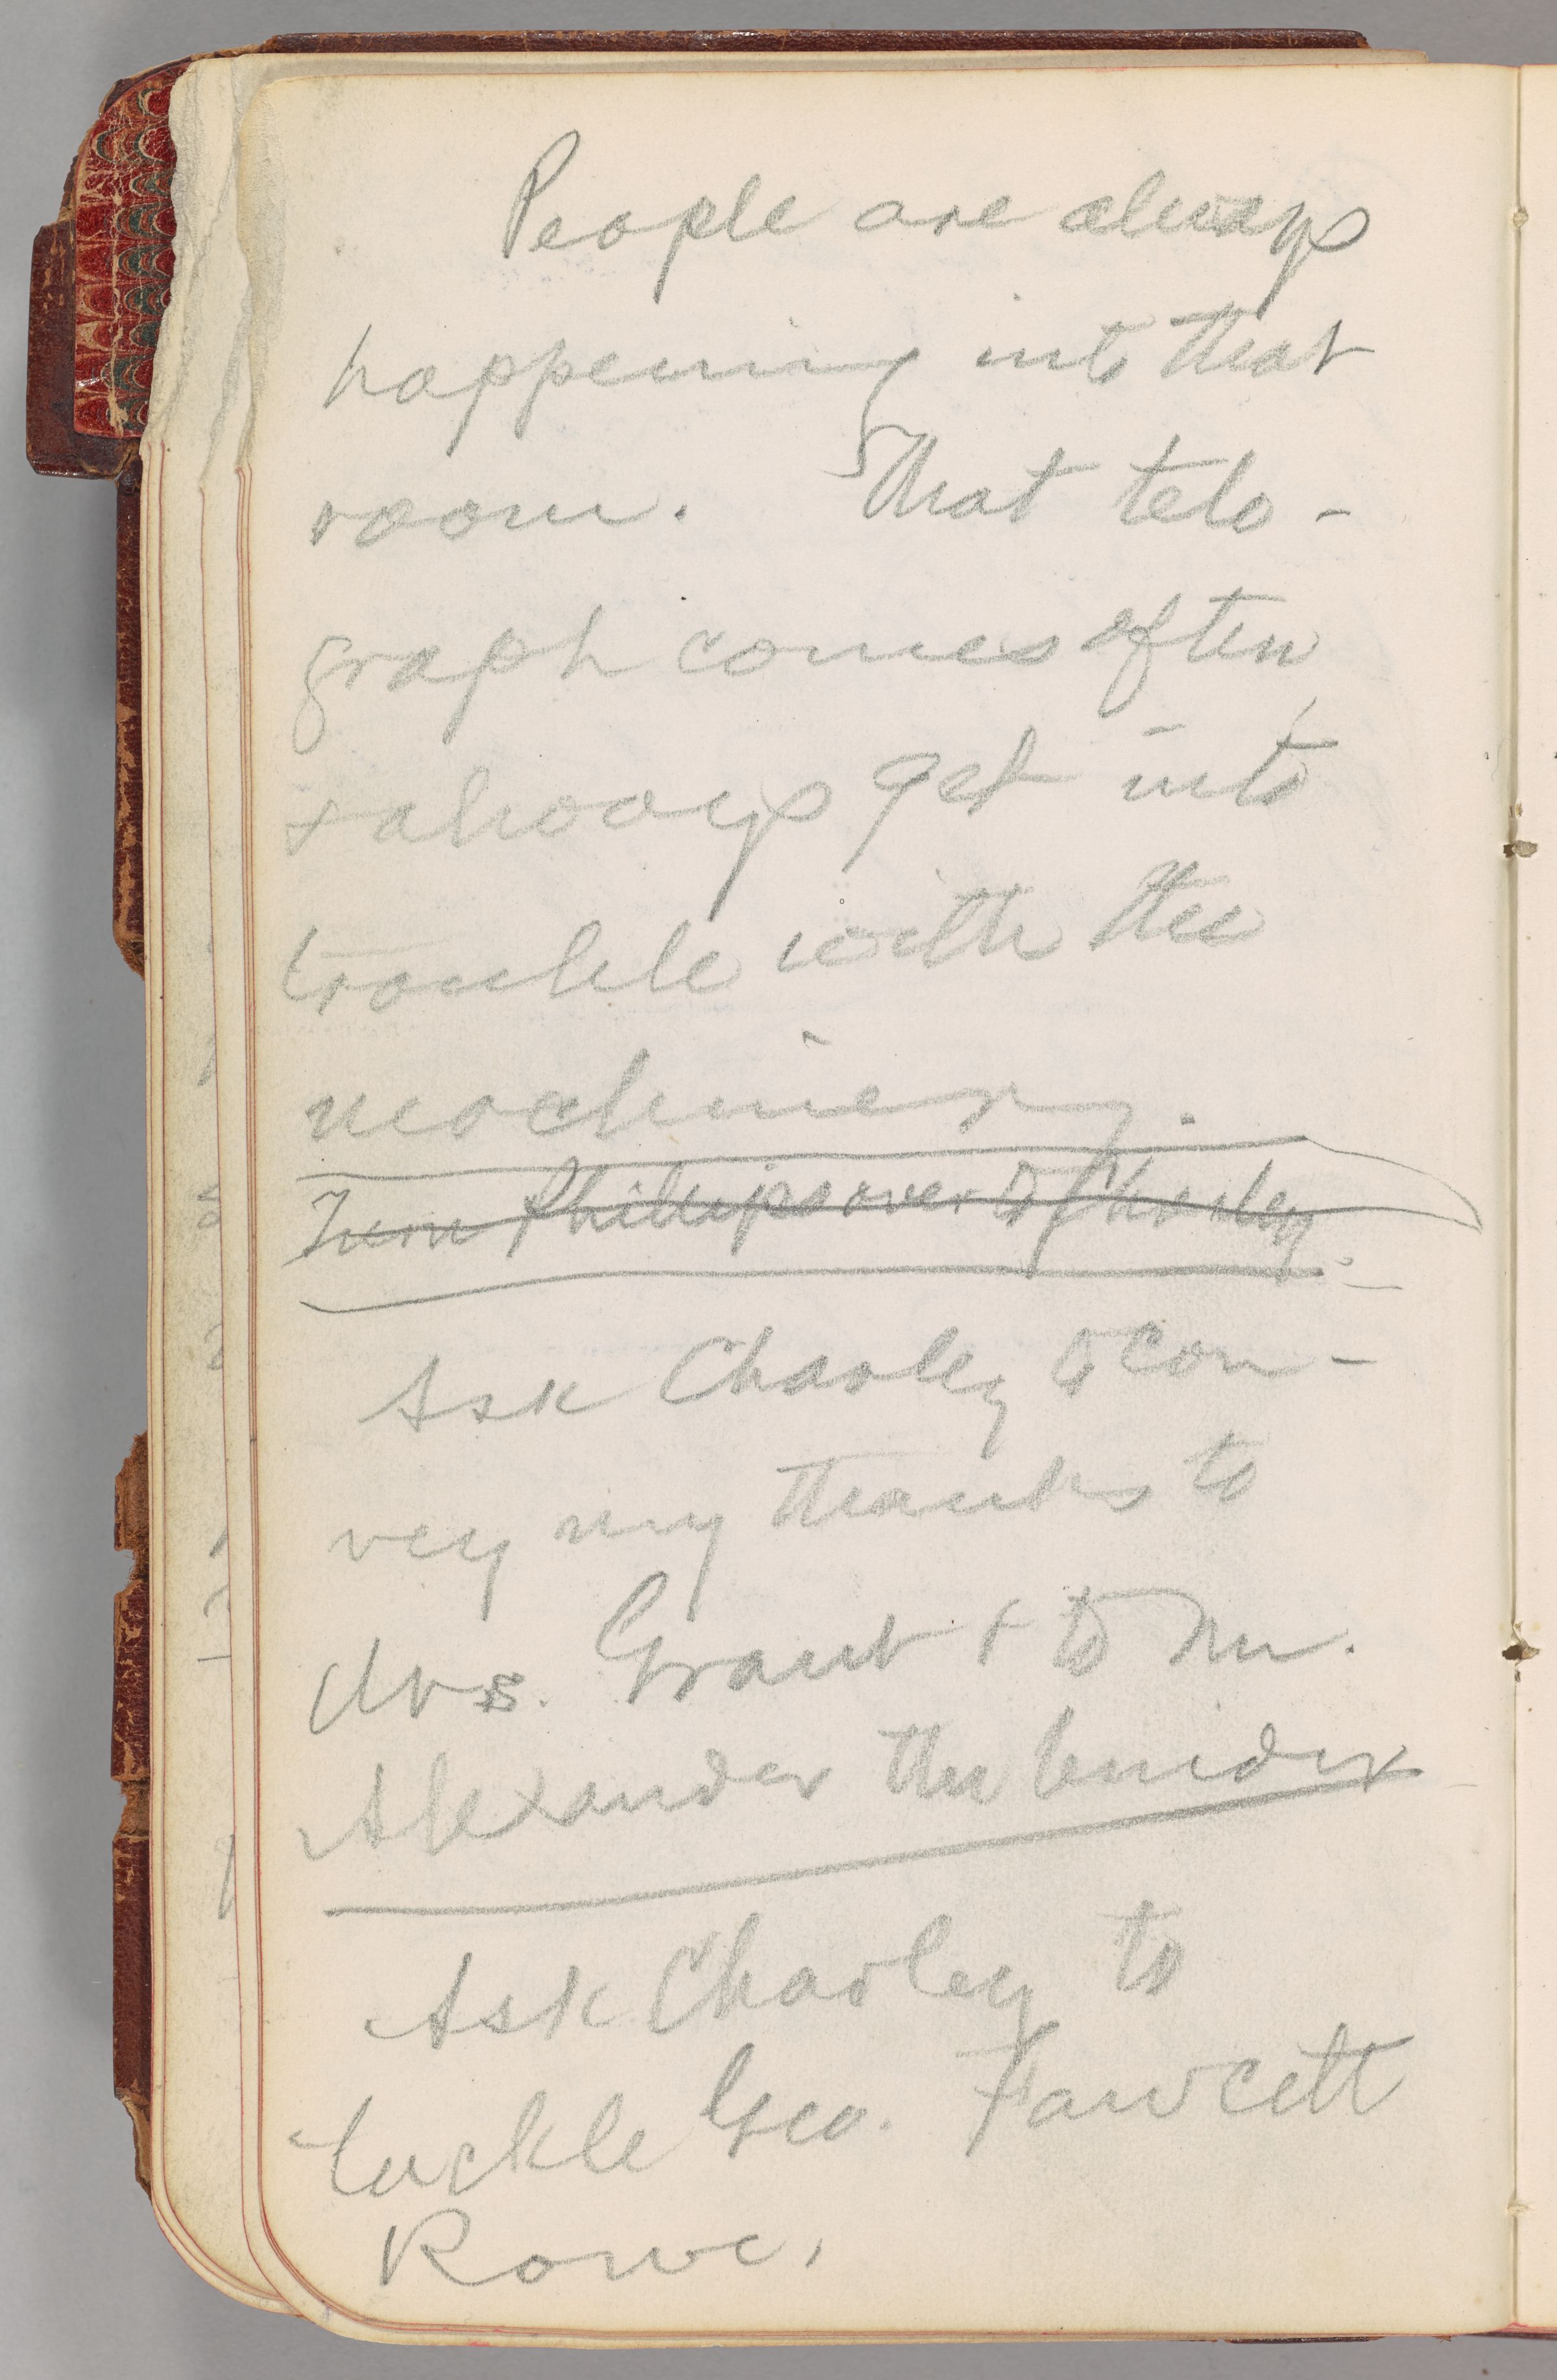 People are always
happening into that
room. That tele-
graph comes often
& always get into
trouble with the
machinery.
Turn Phillips over to Charley
Ask Charley to con-
vey my thanks to
Mrs. Grant & to Mr.
Alexander the binder
Ask Charley to
tackle Geo. Fawcett
Rowe.